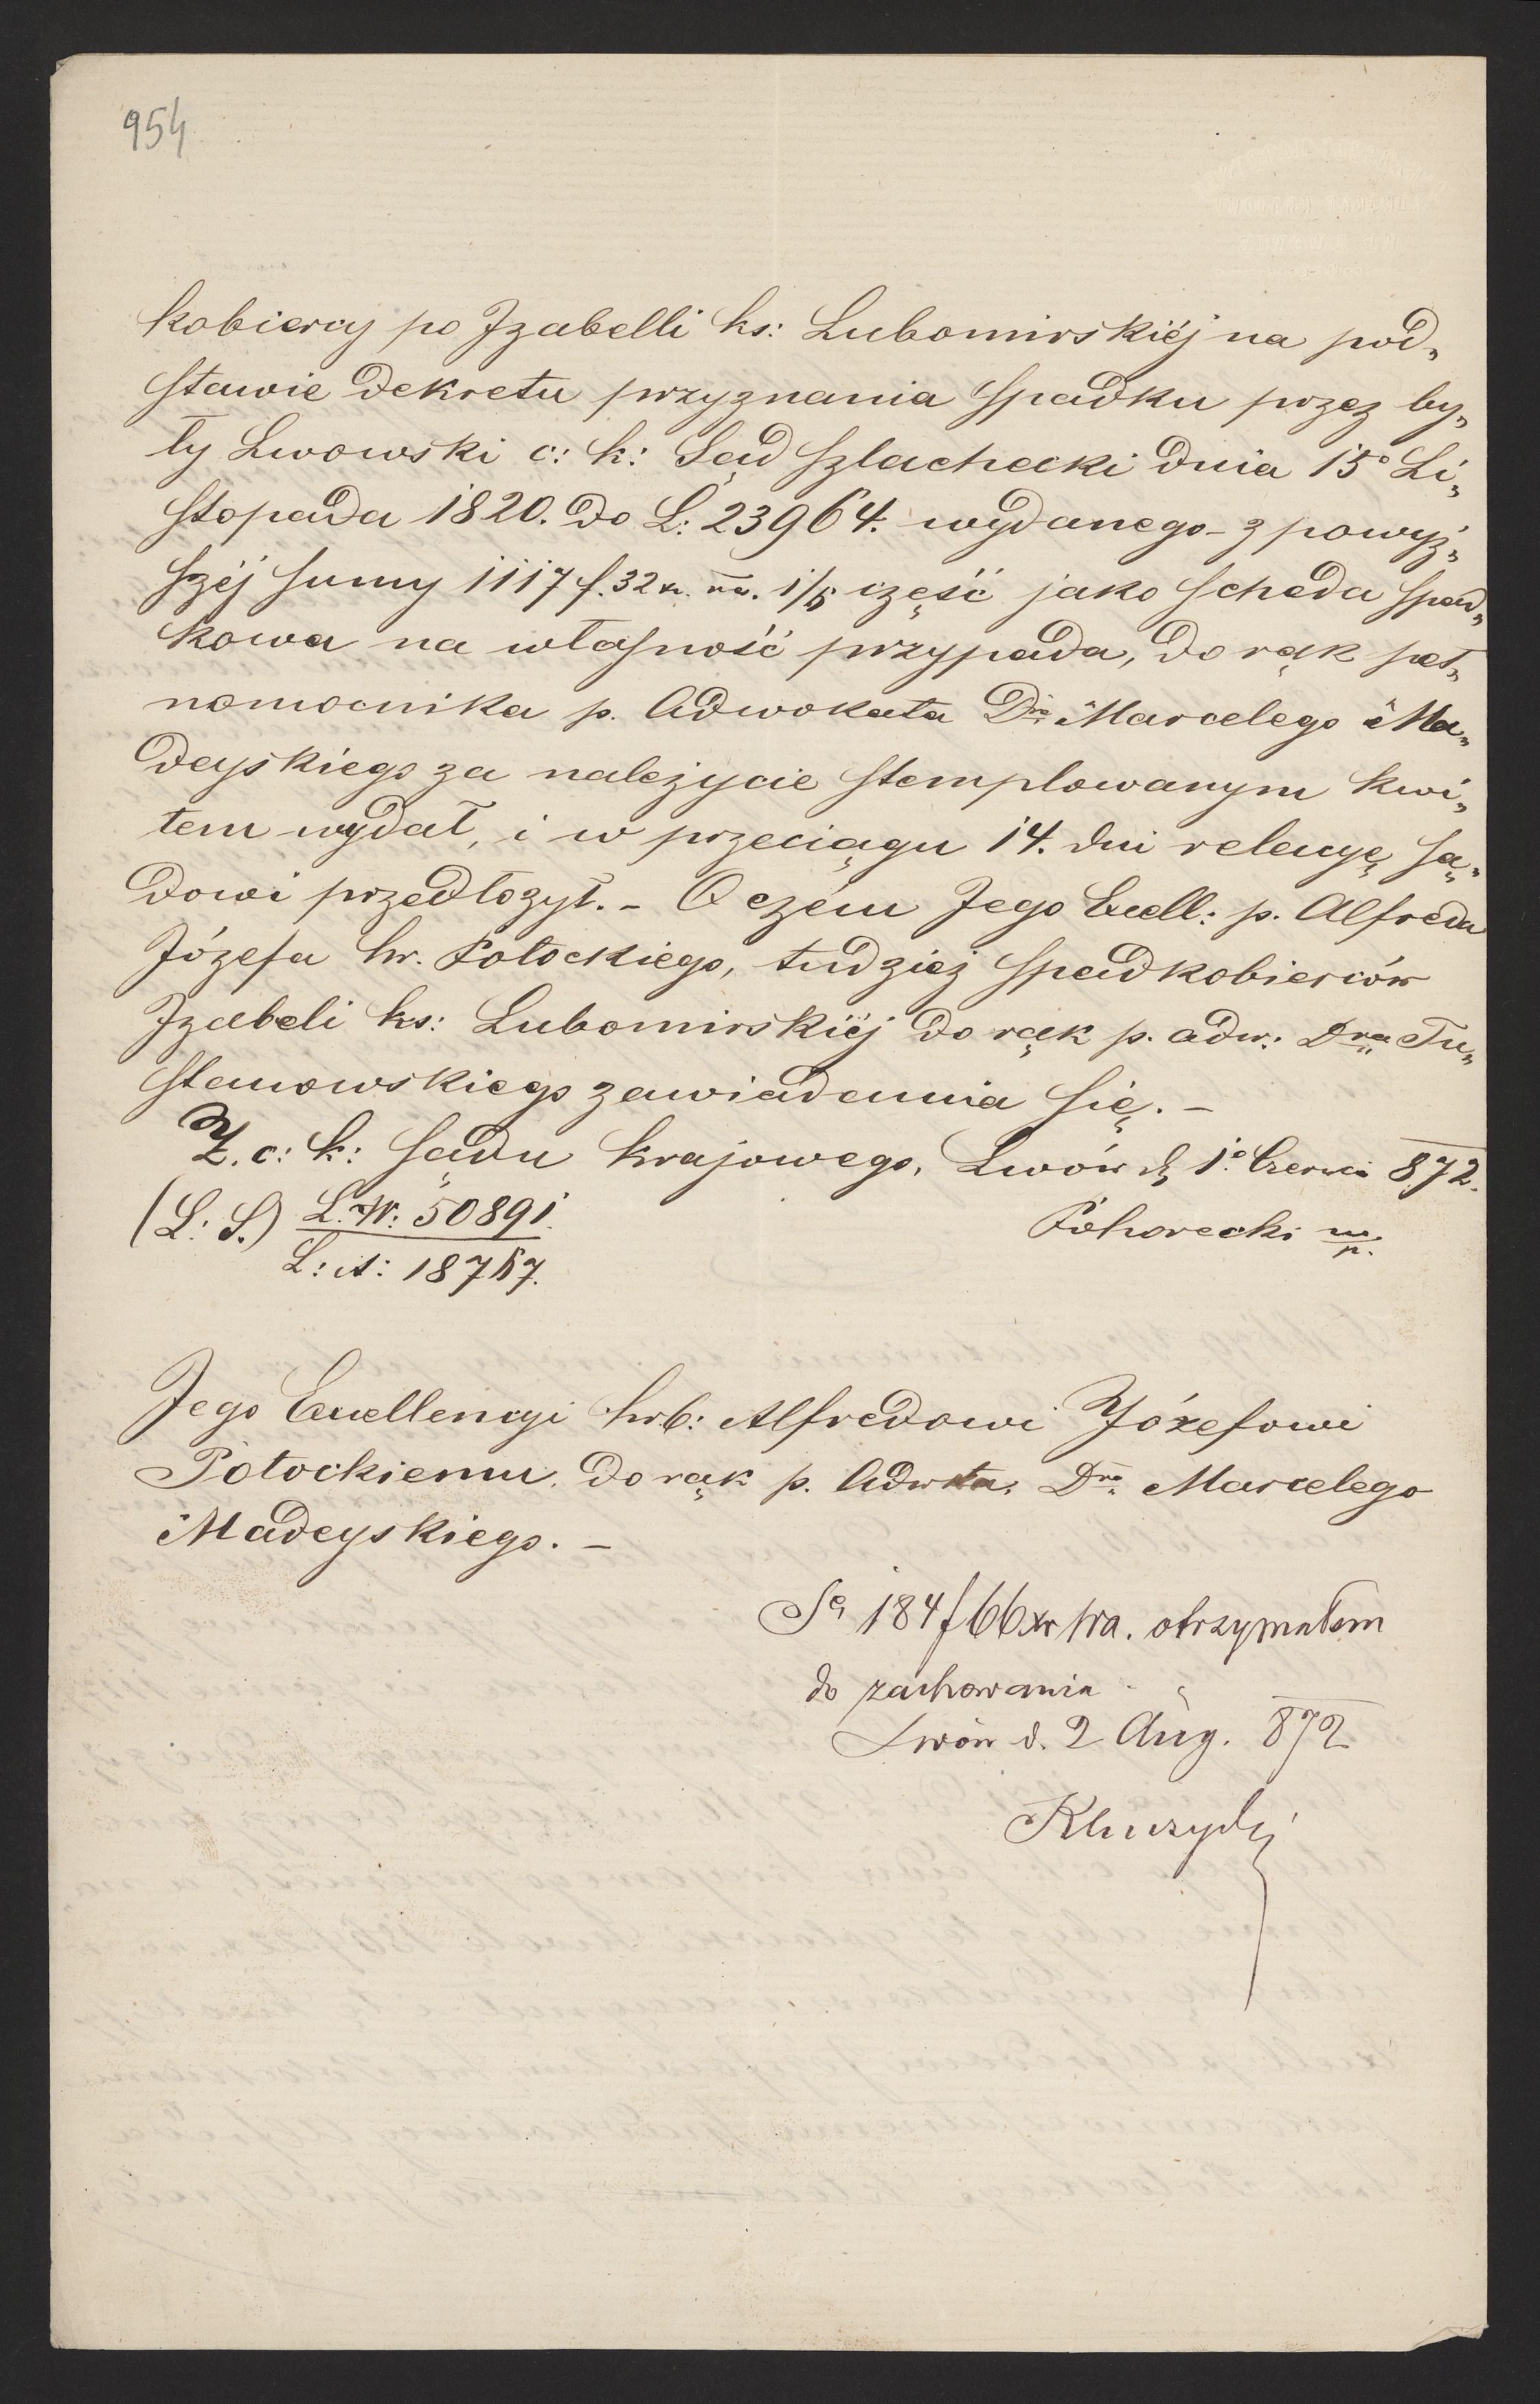 954
kobiercy po Izabelli ks: Lubomirskiéj na pod„
stawie dekretu przyznania spadku przez by„
ły Lwowski c: k: Sąd szlachecki dnia 15o Li„
stopada 1820. do L: 23964. wydanego – z powyż„
széj sumy 1117 f. 32 kr. wa. 1/5 część jako scheda spad„
kowa na własność przypada, do rąk peł„
nomocnika p. Adwokata Dra Marcelego Ma„
deyskiego za należycie stemplowanym kwi„
tem wydał, i w przeciągu 14. dni relacyę są„
dowi przedłożył. – O czém Jego Excell: p. Alfreda
Józefa hr. Potockiego, tudzież spadkobierców
Izabeli ks: Lubomirskiéj do rąk p. adw: Dra Tu„
stanowskiego zawiadamia się. –
Z. c: k: sądu krajowego. Lwów d. 1o Czerwca 872.
(L: S.) L. W: 50891. Pohorecki m/p.
L: A: 18757.
Jego Excellencyi hrb: Alfredowi Józefowi
Potockiemu. do rąk p. Adwkta. Dra Marcelego
Madeyskiego. –
184 f 66 xr wa. otrzymałem
do zachowania
Lwów d. 2 Aug. 872